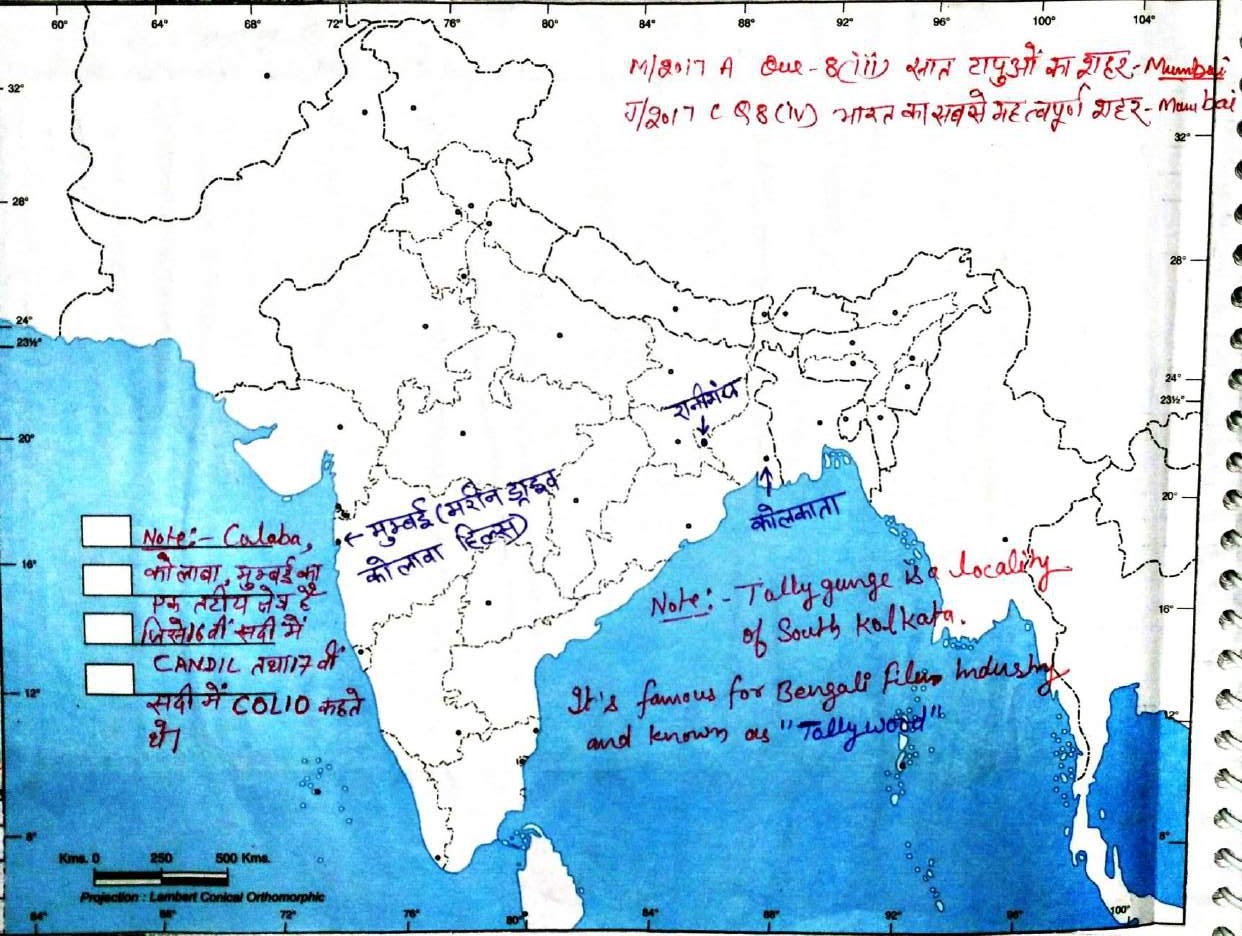 60° 64° 68° 72° 76° 80° 84° 88° 92° 96° 100° 104°
M/2017 A Que-8(iii) सात टापुओं का शहर:- Mumbai
J/2017 C Q8(iv) भारत का सबसे महत्वपूर्ण शहर- Mumbai
32°
32°
28°
28°
24°
23½°
24°
23½°
20°
20°
16°
16°
12°
12°
8°
8°
रानीगंज
कोलकाता
← मुम्बई (मरीन ड्राइव
कोलाबा हिल्स)
Note:- Colaba,
कोलाबा, मुम्बई का
एक तटीय क्षेत्र है
जिसे 16वीं सदी में
CANDIL तथा 17 वीं
सदी में COLIO कहते
थे।
Note:- Tally gunge is a locality
of South Kolkata.
It's famous for Bengali film Industry
and known as "Tallywood"
Kms. 0 250 500 Kms.
Projection : Lambert Conical Orthomorphic
64° 68° 72° 76° 80° 84° 88° 92° 96° 100°